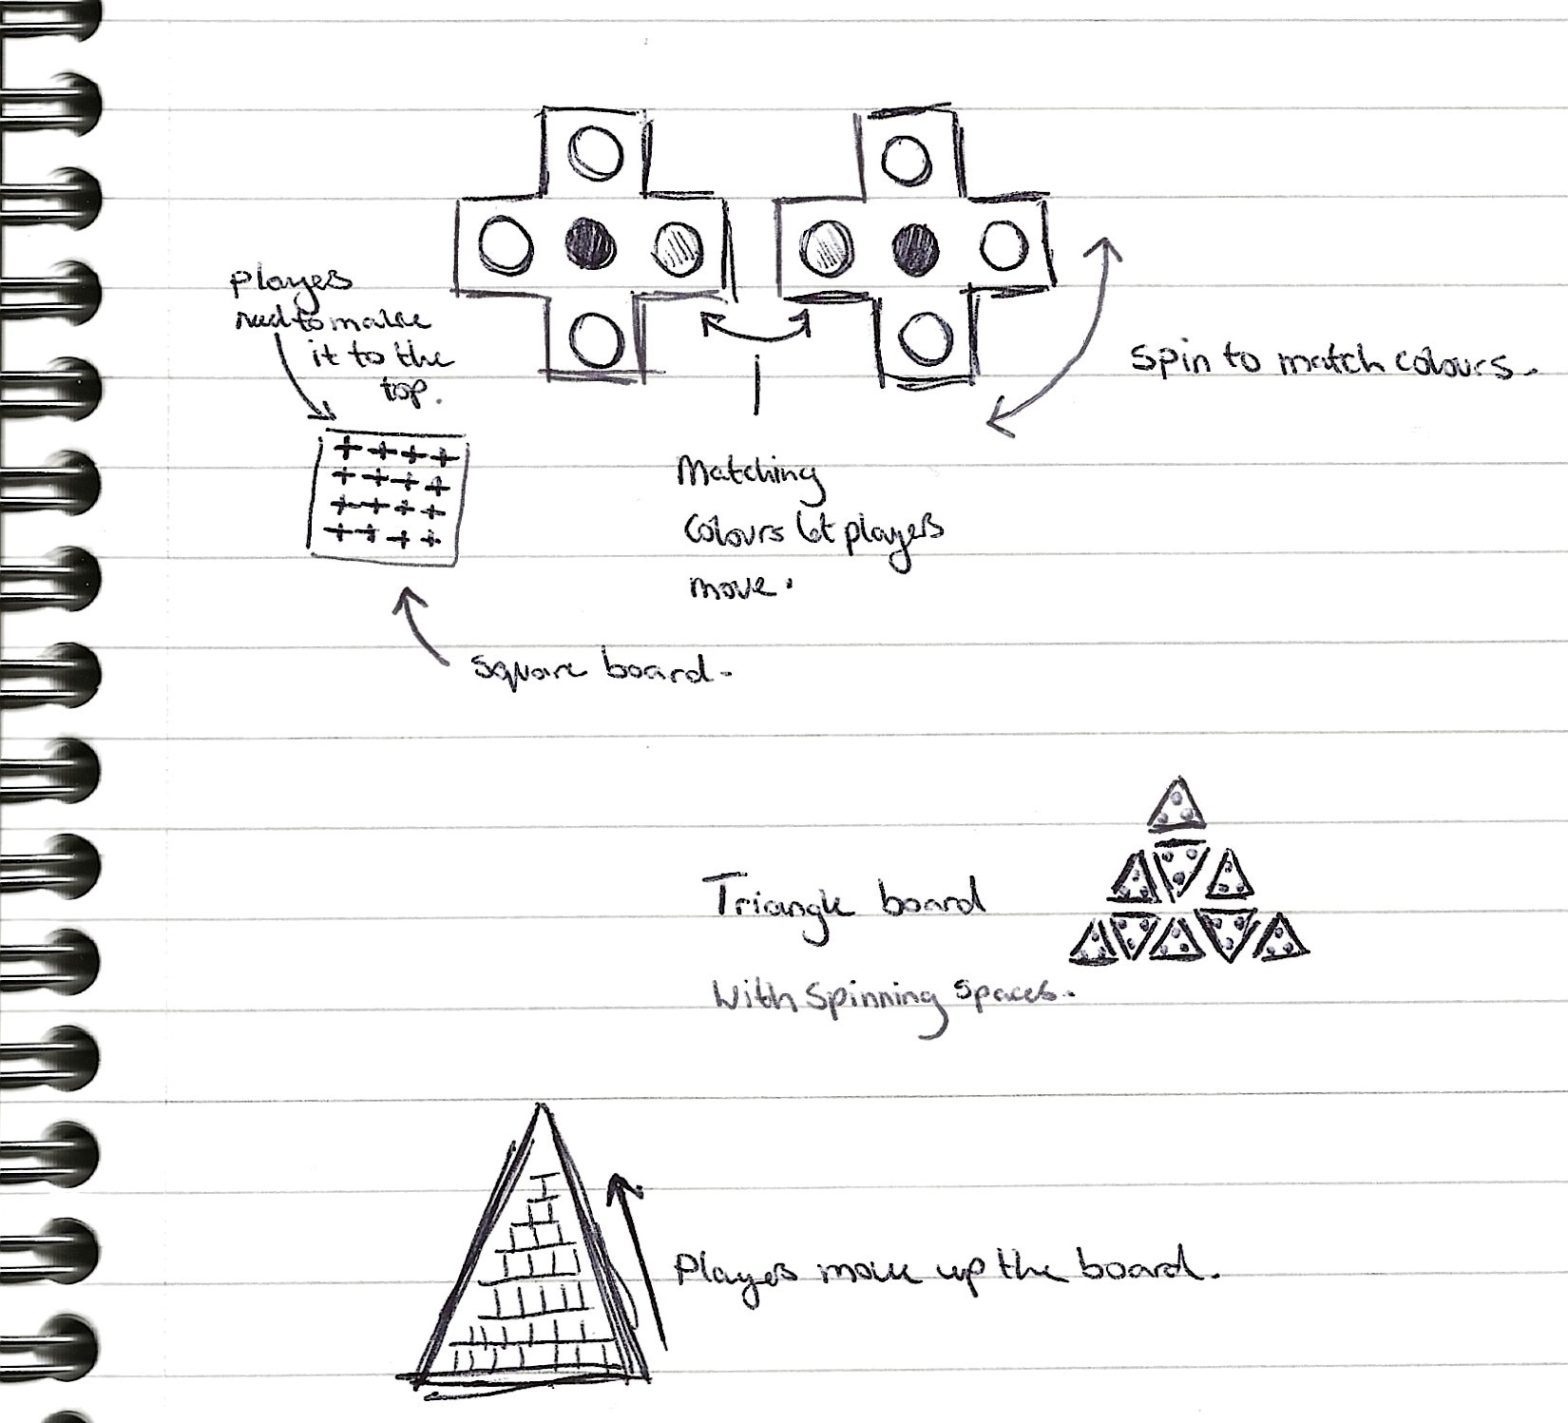 Players
need to make
it to the
top.
Spin to match colours.
Matching
Colours let players
move.
Square board.
Triangle board
With Spinning Spaces.
Players move up the board.